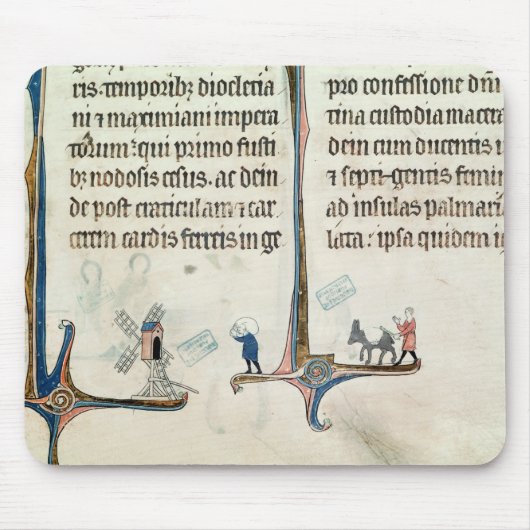 ris. temporibꝫ dioclecia
ni ⁊ maximiani impera
torum: qui primo fusti
bꝫ nodosis cesus. ac dein
de post craticulam ⁊ car
cerem cardis ferreis in ge
pro confessione dn̄i
tina custodia macera
dein cum ducentis
⁊ septi-gentis femin
ad insulas palmari
lata: ipsa quidem i